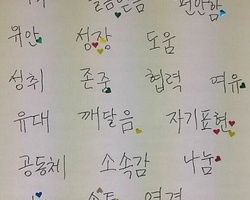 편안함
위안 성장 도움
성취 존중 협력 여유
유대 깨달음 자기표현
공동체 소속감 나눔
소통 연결